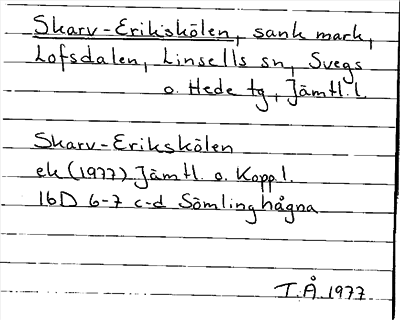 Skarv-Erikskölen, sank mark,
Lofsdalen, Linsells sn, Svegs
o. Hede tg, Jämtl. l.
Skarv-Erikskölen
ek (1977) Jämtl. o. Koppl.
16D 6-7 c-d Sömlinghågna
T.Å. 1977